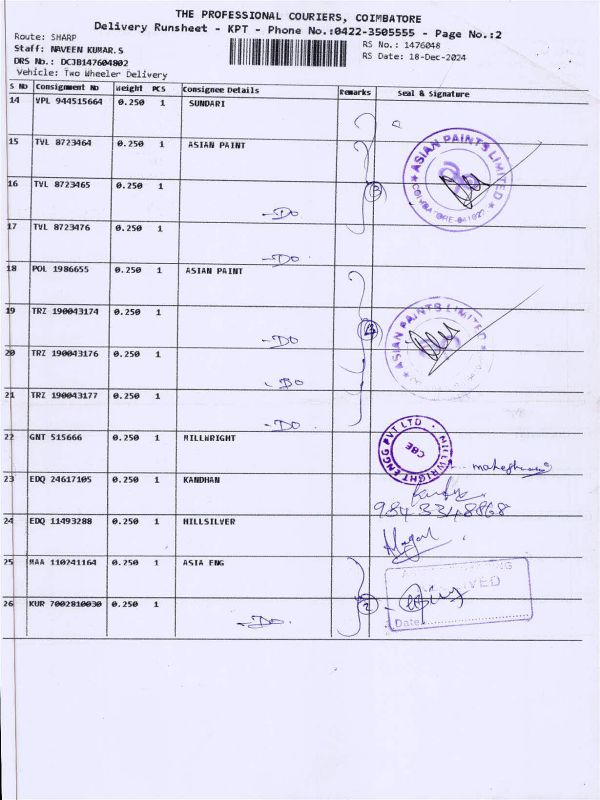 THE PROFESSIONAL COURIERS, COIMBATORE
Delivery Runsheet - KPT - Phone No.:0422-3505555 - Page No.:2
Route: SHARP
RS No.: 1476048
Staff: NAVEEN KUMAR.S
RS Date: 18-Dec-2024
DRS No.: DCJB147604802
Vehicle: Two Wheeler Delivery
S No Consignment No Weight PCS Consignee Details Remarks Seal & Signature
14 VPL 944515664 0.250 1 SUNDARI
15 TVL 8723464 0.250 1 ASIAN PAINT
16 TVL 8723465 0.250 1
-Do
3
ASIAN PAINTS LIMITED
17 TVL 8723476 0.250 1
-Do.
18 POL 1986655 0.250 1 ASIAN PAINT
19 TRZ 190043174 0.250 1
-Do
4
ASIAN PAINTS LIMITED
20 TRZ 190043176 0.250 1
-Do
21 TRZ 190043177 0.250 1
-Do.
22 GNT 515666 0.250 1 MILLWRIGHT
MILLWRIGHT ENGG PVT LTD
CBE
23 EDQ 24617105 0.250 1 KANDHAN
984 3348868
24 EDQ 11493288 0.250 1 HILLSILVER
25 MAA 110241164 0.250 1 ASIA ENG
26 KUR 7002810030 0.250 1
-Do.
2
Date